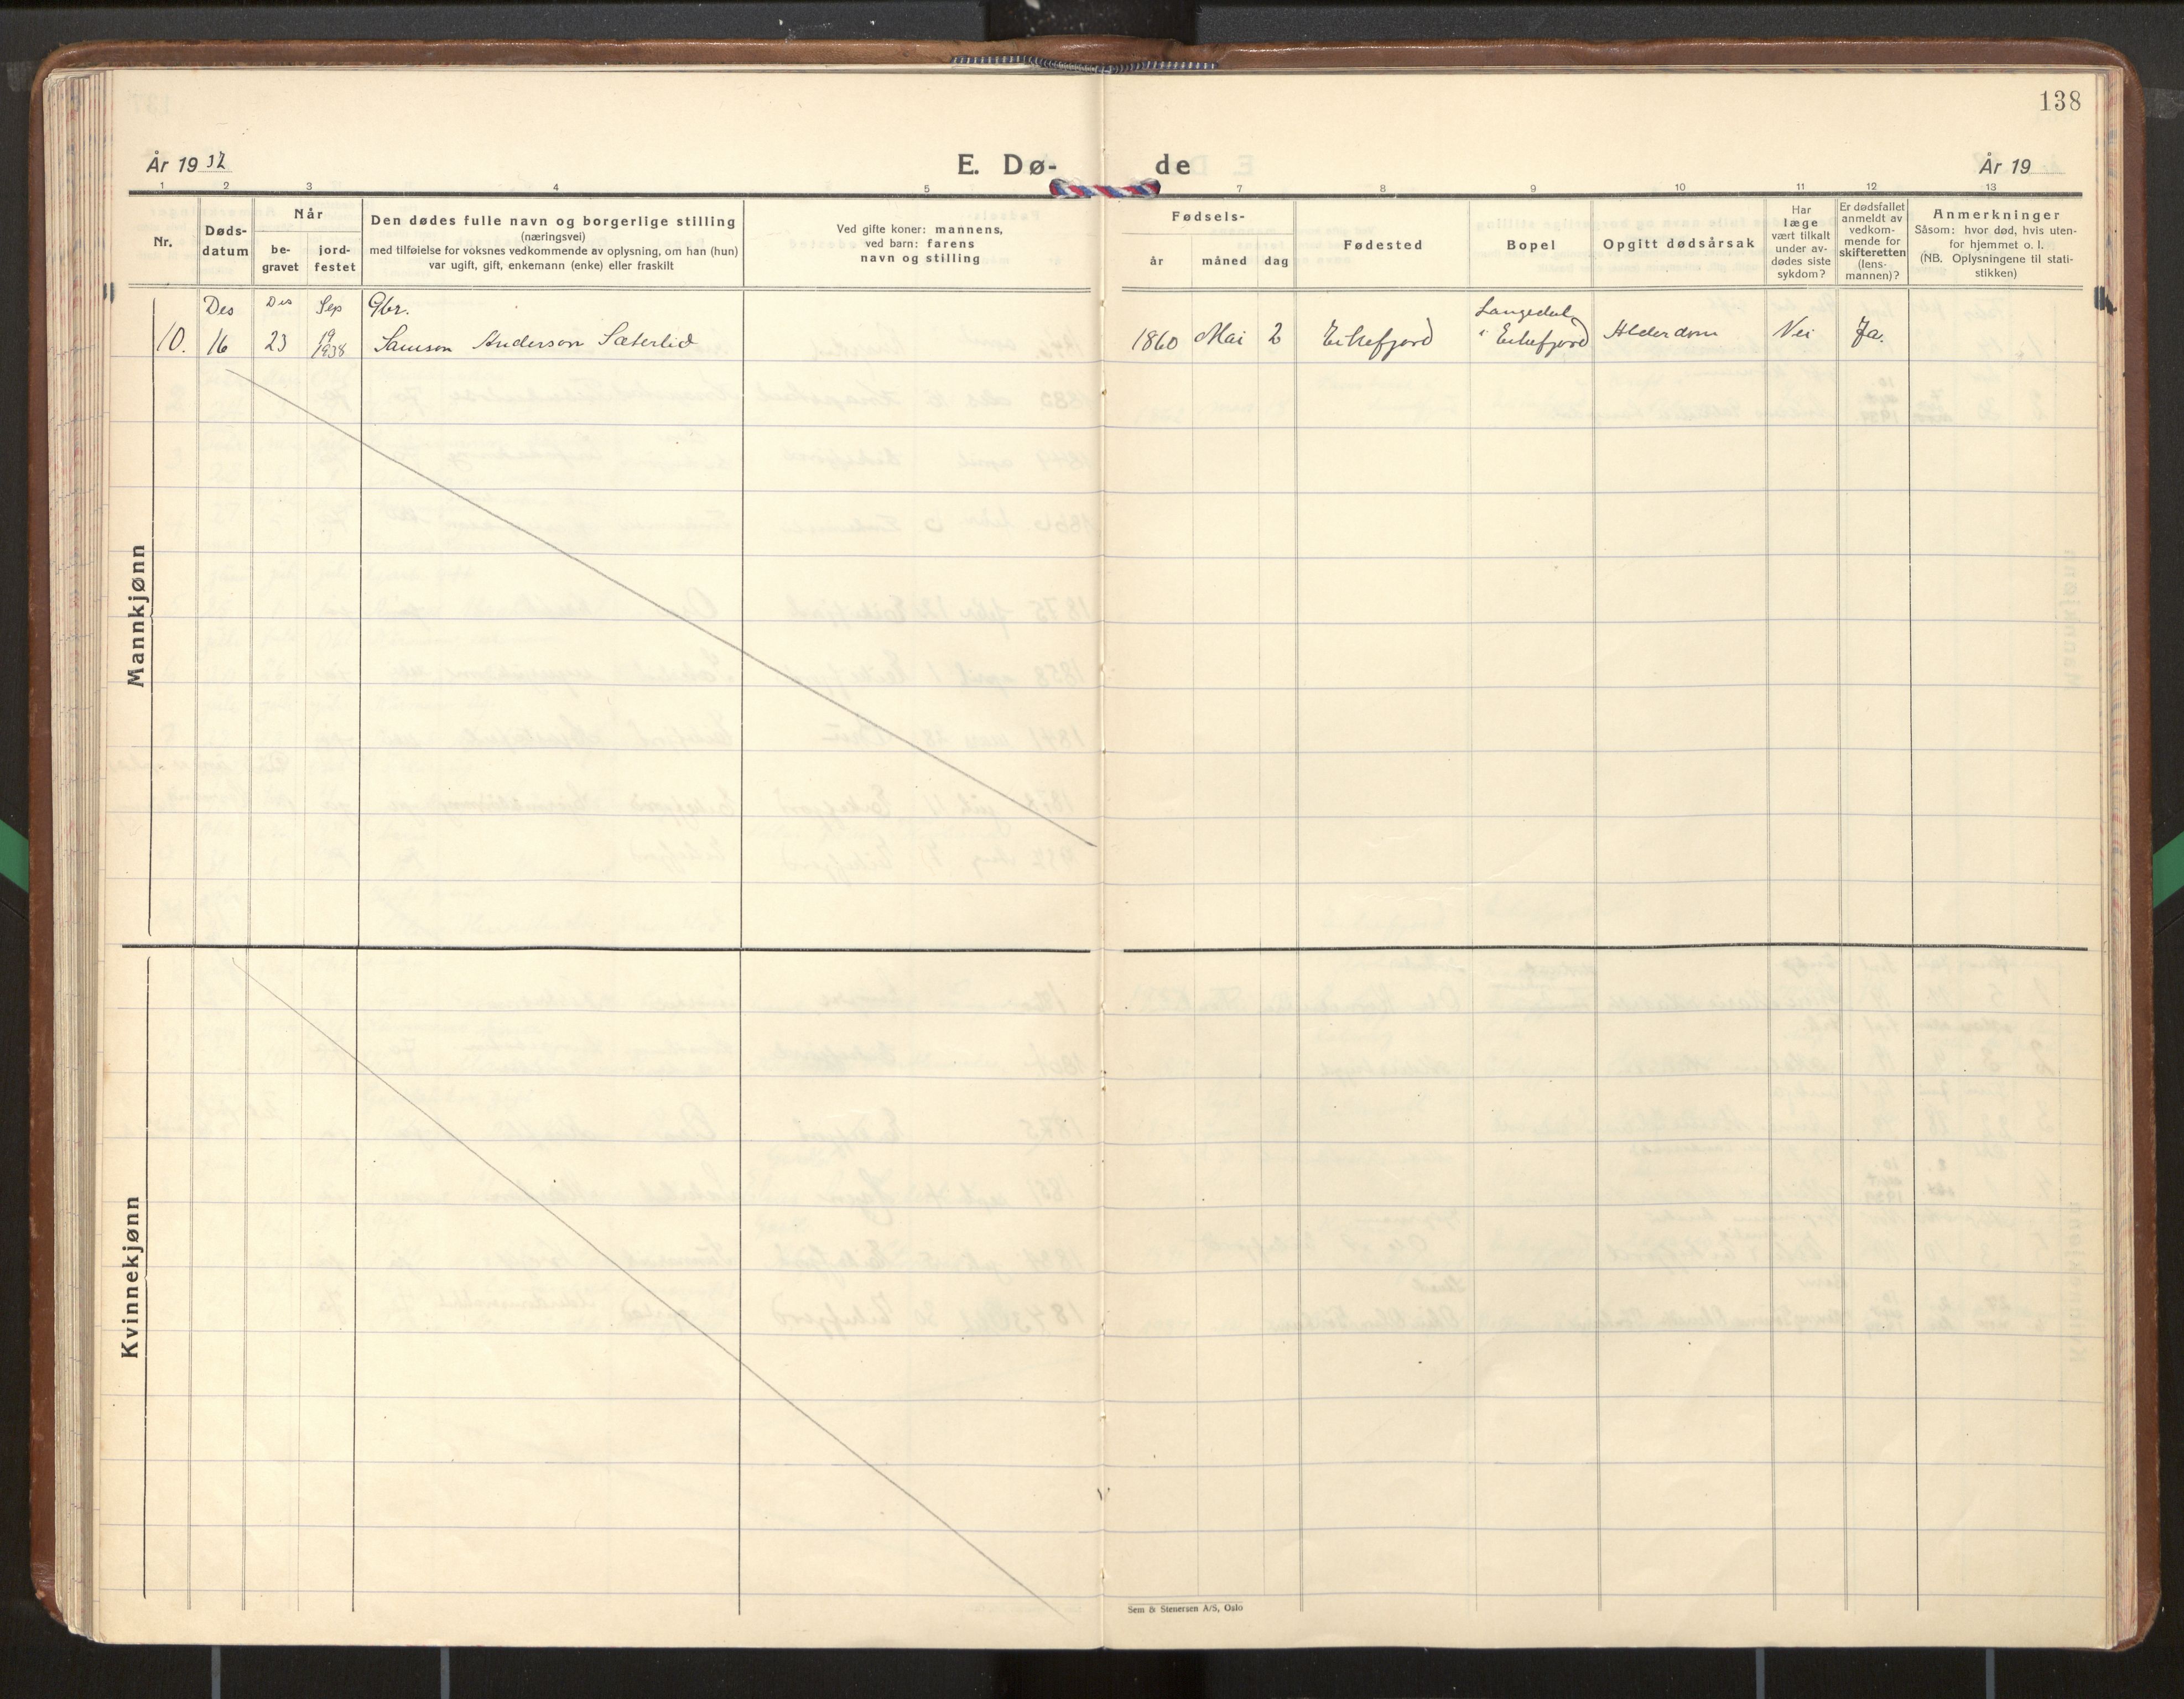 138
År 19 37
E. Dø-
de
År 19
1 2 3 4 5 7 8 9 10 11 12 13
Nr.
Døds-
datum
Når
be-
gravet
jord-
festet
Den dødes fulle navn og borgerlige stilling
(næringsvei)
med tilføielse for voksnes vedkommende av oplysning, om han (hun)
var ugift, gift, enkemann (enke) eller fraskilt
Ved gifte koner: mannens,
ved barn: farens
navn og stilling
Fødsels-
år
måned
dag
Fødested
Bopel
Opgitt dødsårsak
Har
læge
vært tilkalt
under av-
dødes siste
sykdom?
Er dødsfallet
anmeldt av
vedkom-
mende for
skifteretten
(lens-
mannen)?
Anmerkninger
Såsom: hvor død, hvis uten-
for hjemmet o. l.
(NB. Oplysningene til stati-
stikken)
Mannkjønn
Des Des Sep Gbr. Langedal
10. 16 23 19 1938 Samson Anderson Sæterlid 1860 Mai 2 Eikefjord i Eikefjord Alderdom Nei Ja.
Kvinnekjønn
Sem & Stenersen A/S, Oslo